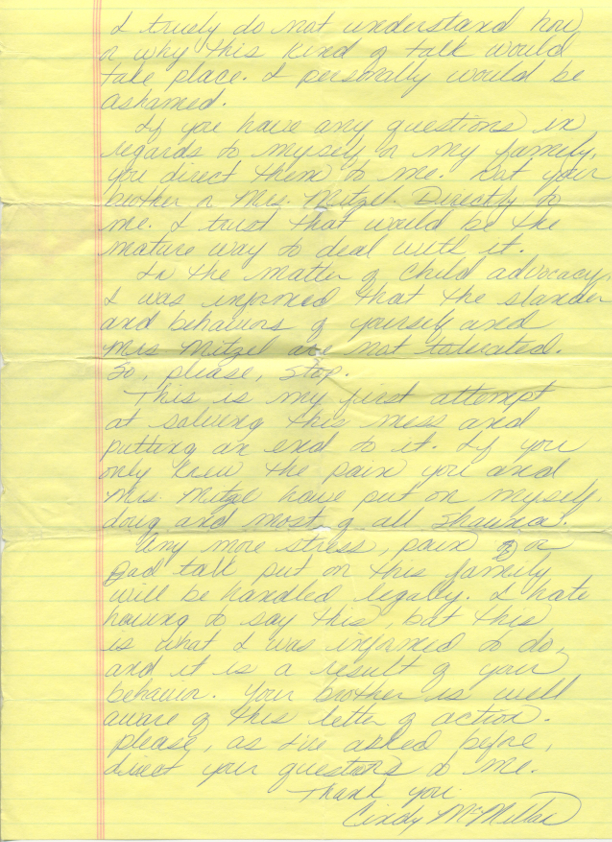 I truely do not understand how
or why this kind of talk would
take place. I personally would be
ashamed.
If you have any questions in
regards to myself or my family,
you direct them to me. Not your
brother or Mrs. Mitzel. Directly to
me. I trust that would be the
mature way to deal with it.
In the matter of child advocacy,
I was informed that the slander
and behaviors of yourself and
Mrs Mitzel are not tolerated.
So, please, stop.
This is my first attempt
at solving this mess and
putting an end to it. If you
only knew the pain you and
Mrs. Mitzel have put on myself,
doug and most of all Shauna.
Any more stress, pain or
Bad talk put on this family
will be handled legally. I hate
having to say this, but this
is what I was informed to do,
and it is a result of your
behavior. Your brother is well
aware of this letter of action.
please, as I've asked before,
direct your questions to me.
Thank you
Cindy McMillan